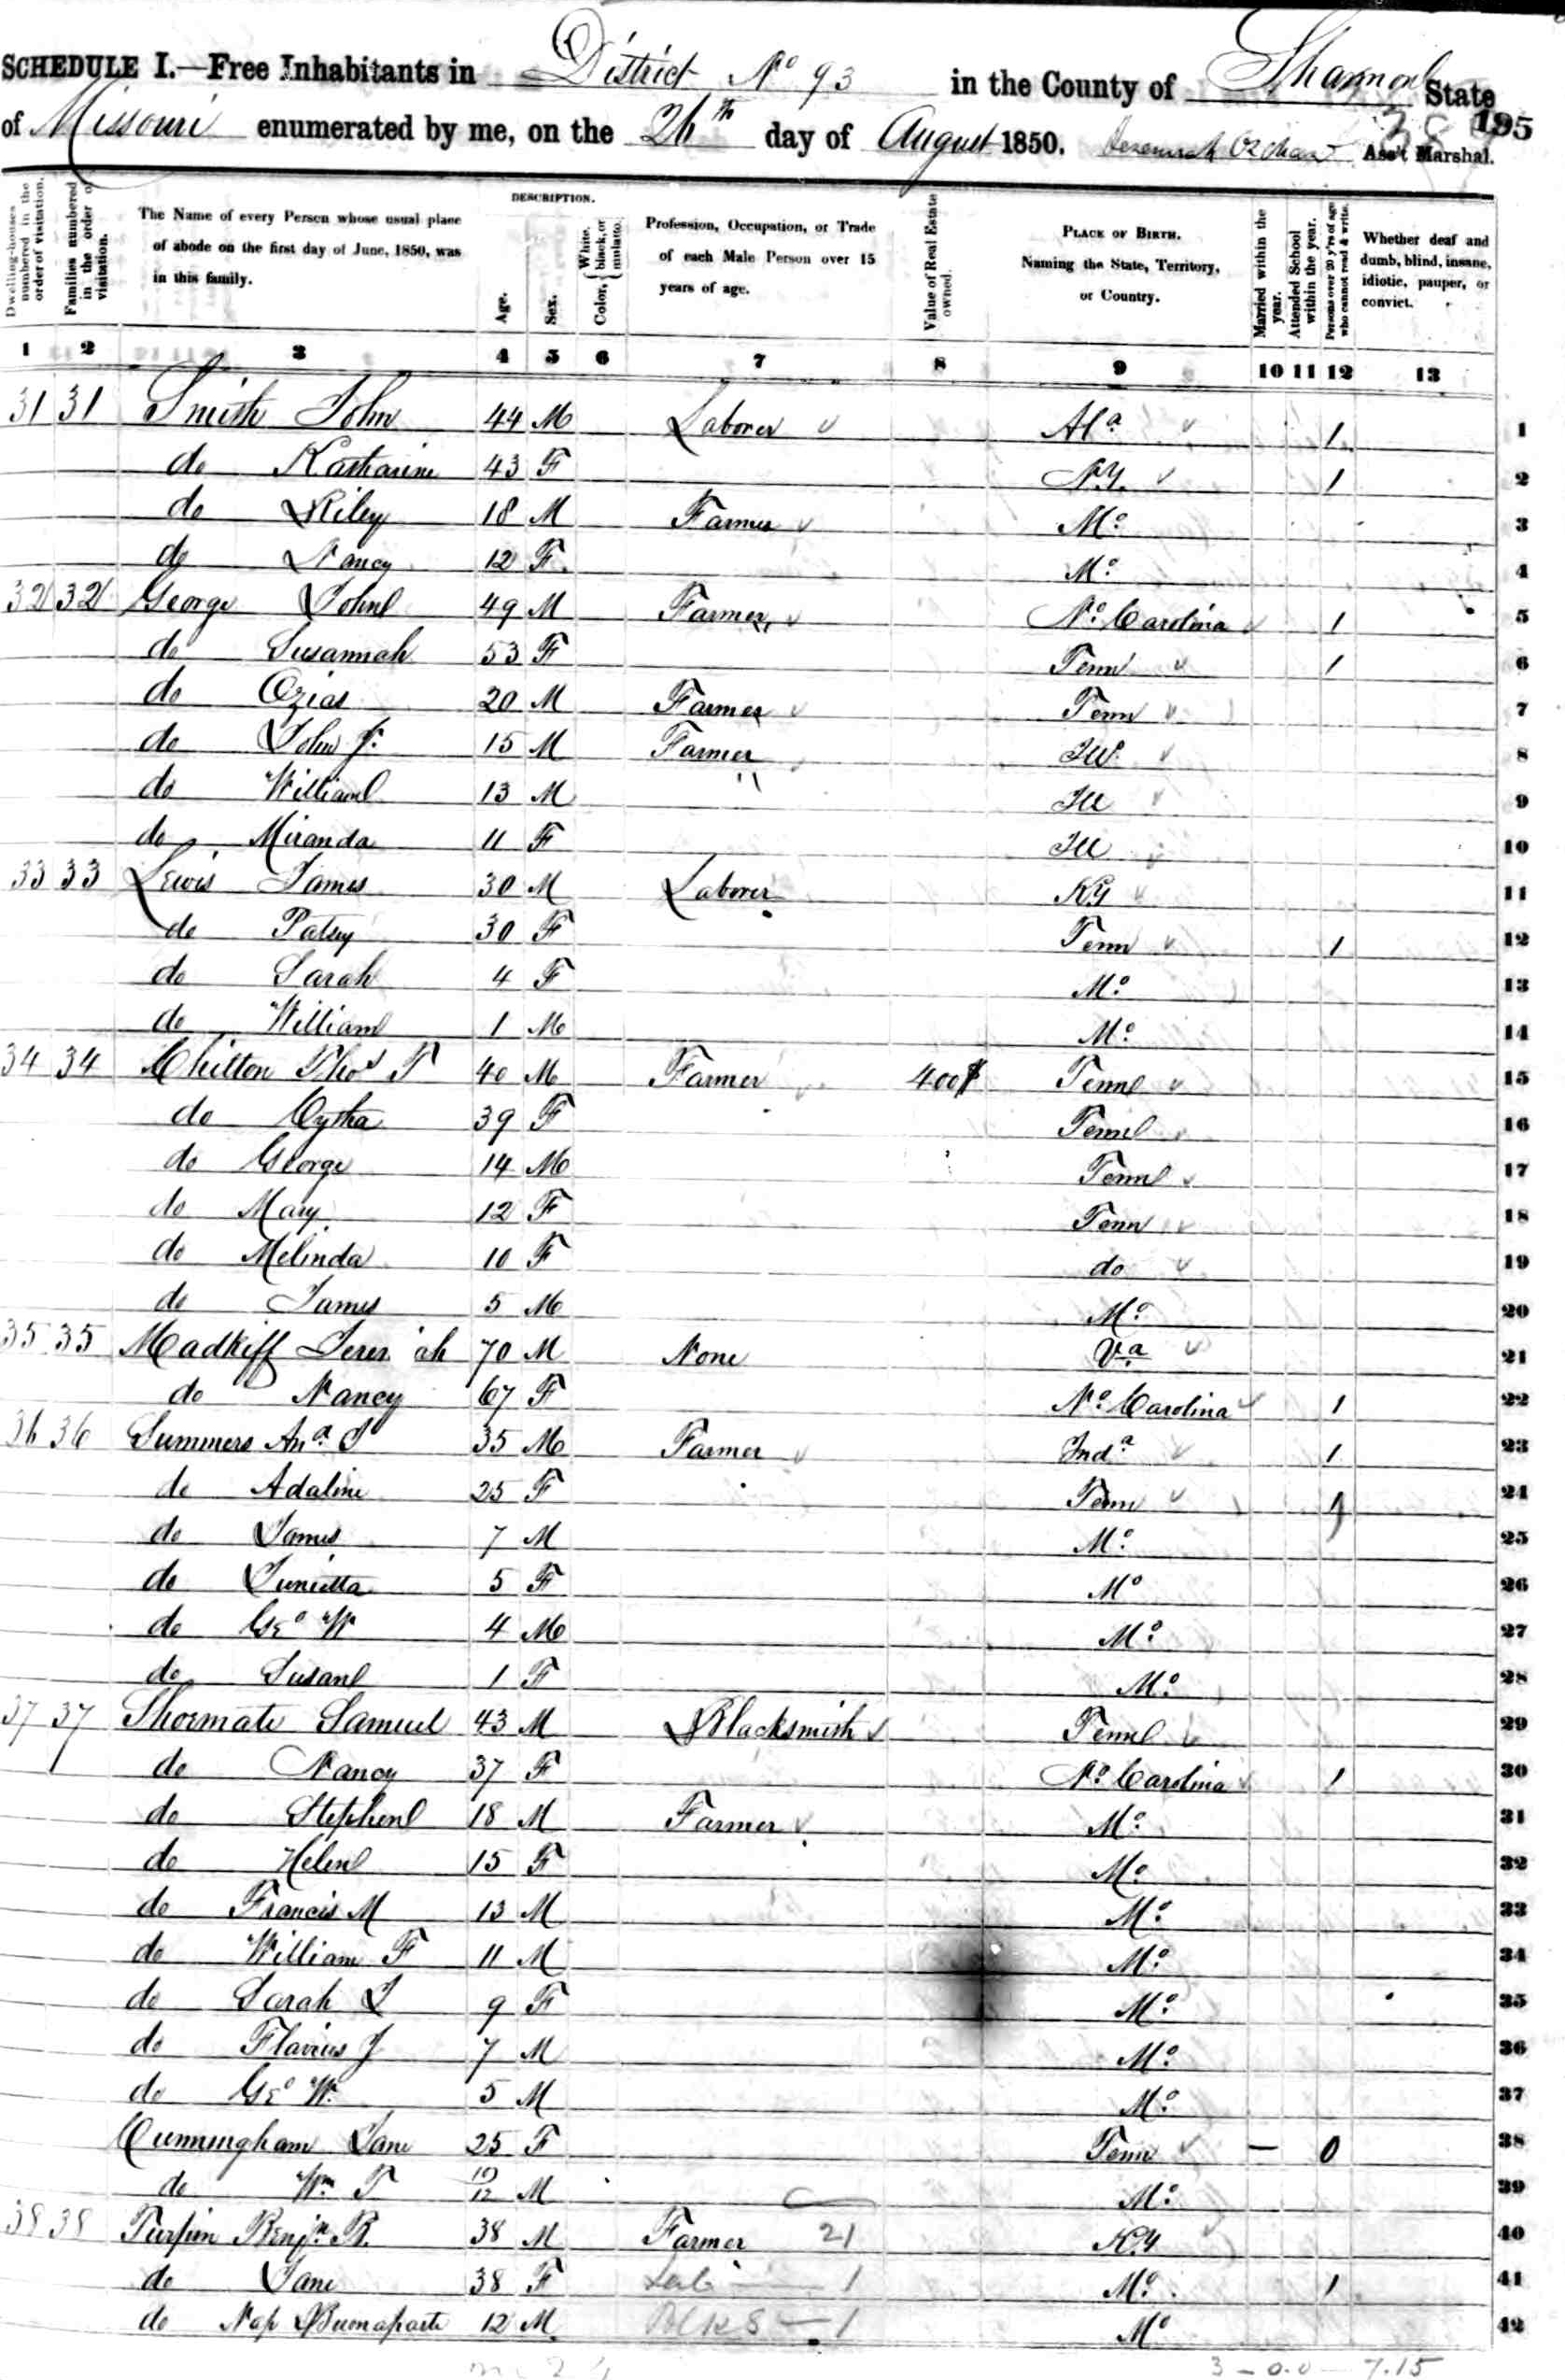 SCHEDULE I.—Free Inhabitants in District No 93 in the County of Shannon State
of Missouri enumerated by me, on the 26th day of August 1850. Ass't Marshal.
195
DESCRIPTION.
Dwelling-houses numbered in the order of visitation.
Families numbered in the order of visitation.
The Name of every Person whose usual place of abode on the first day of June, 1850, was in this family.
Age.
Sex.
Color, { White, black, or mulatto.
Profession, Occupation, or Trade of each Male Person over 15 years of age.
Value of Real Estate owned.
PLACE OF BIRTH. Naming the State, Territory, or Country.
Married within the year.
Attended School within the year.
Persons over 20 y'rs of age who cannot read & write.
Whether deaf and dumb, blind, insane, idiotic, pauper, or convict.
1 2 3 4 5 6 7 8 9 10 11 12 13
31 31 Smith John 44 M Laborer Ala 1 1
do Katharine 43 F 1 2
do Riley 18 M Farmer Mo 3
do Nancy 12 F Mo 4
32 32 George John 49 M Farmer No Carolina 1 5
do Susannah 53 F Tenn 1 6
do Ozias 20 M Farmer Tenn 7
do John F. 15 M Farmer Ill 8
do William 13 M " Ill 9
do Miranda 11 F Ill 10
33 33 Lewis James 30 M Laborer Ky 11
do Patsy 30 F Tenn 1 12
do Sarah 4 F Mo 13
do William 1 M Mo 14
34 34 Chilton Thos T 40 M Farmer 400$ Tenn 15
do Cytha 39 F Tenn 16
do George 14 M Tenn 17
do Mary 12 F Tenn 18
do Melinda 10 F do 19
do James 5 M Mo 20
35 35 Madkiff Jerem ah 70 M None Va 21
do Nancy 67 F No Carolina 1 22
36 36 Summers 35 M Farmer Inda 1 23
do Adaline 25 F Tenn 1 24
do James 7 M Mo 25
do Junietta 5 F Mo 26
do Geo W 4 M Mo 27
do Susan 1 F Mo 28
37 37 Shormate Samuel 43 M Blacksmith Tenn 29
do Nancy 37 F No Carolina 1 30
do Stephen 18 M Farmer Mo 31
do Helen 15 F Mo 32
do Francis M 13 M Mo 33
do William F 11 M Mo 34
do Sarah 9 F Mo 35
do Flavius J 7 M Mo 36
do Geo W. 5 M Mo 37
Cunningham Jane 25 F Tenn — 0 38
do Wm T 10/12 M Mo 39
38 38 Turpin Benjn R. 38 M Farmer 21 Ky 40
do Jane 38 F Lab — 1 Mo 1 41
do Nap Buonaparte 12 M Blk S — 1 Mo 42
3 – 0.0 – 7.15